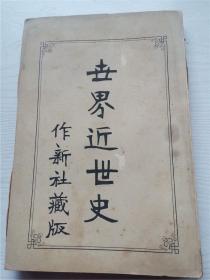 世界近世史
作新社藏版